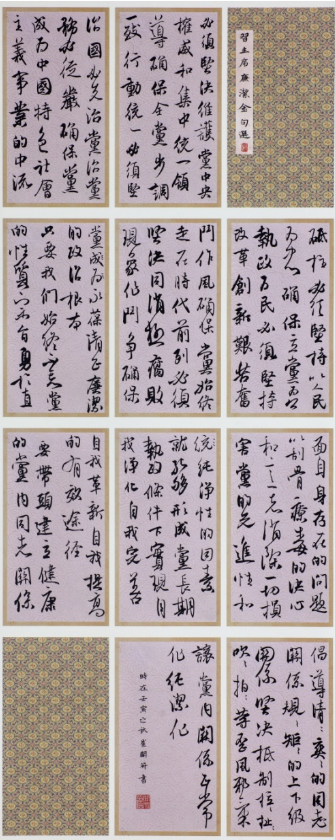 習主席廉潔金句選
必須堅決維護黨中央
權威和集中統一領
導確保全黨步調
一致行動統一必須堅
治國必先治黨治黨
務必從嚴確保黨
成為中國特色社會
主義事業的中流
砥柱必須堅持以人民
確保立黨為
執政為民必須堅持
改革創新艱苦奮
鬥作風確保黨始終
走在時代前列必須
堅決同消極腐敗
現象作鬥爭確保
黨永葆清正廉潔
的政治根本
只要我們始終不忘黨
的性質宗旨勇於直
面自身存在的問題
以刮骨療毒的決心
和意志消除一切損
害黨的先進性和
純淨性的因素
就能夠形成黨長期
執政條件下實現自
我淨化自我完善
自我革新自我提高
的有效途徑
要帶頭建立健康
的黨內同志關係
倡導清清爽爽的同志
關係規規矩矩的上下級
關係堅決抵制拉拉扯扯
吹吹拍拍等歪風邪氣
讓黨內關係正常
化純潔化
時在壬寅之秋崔書